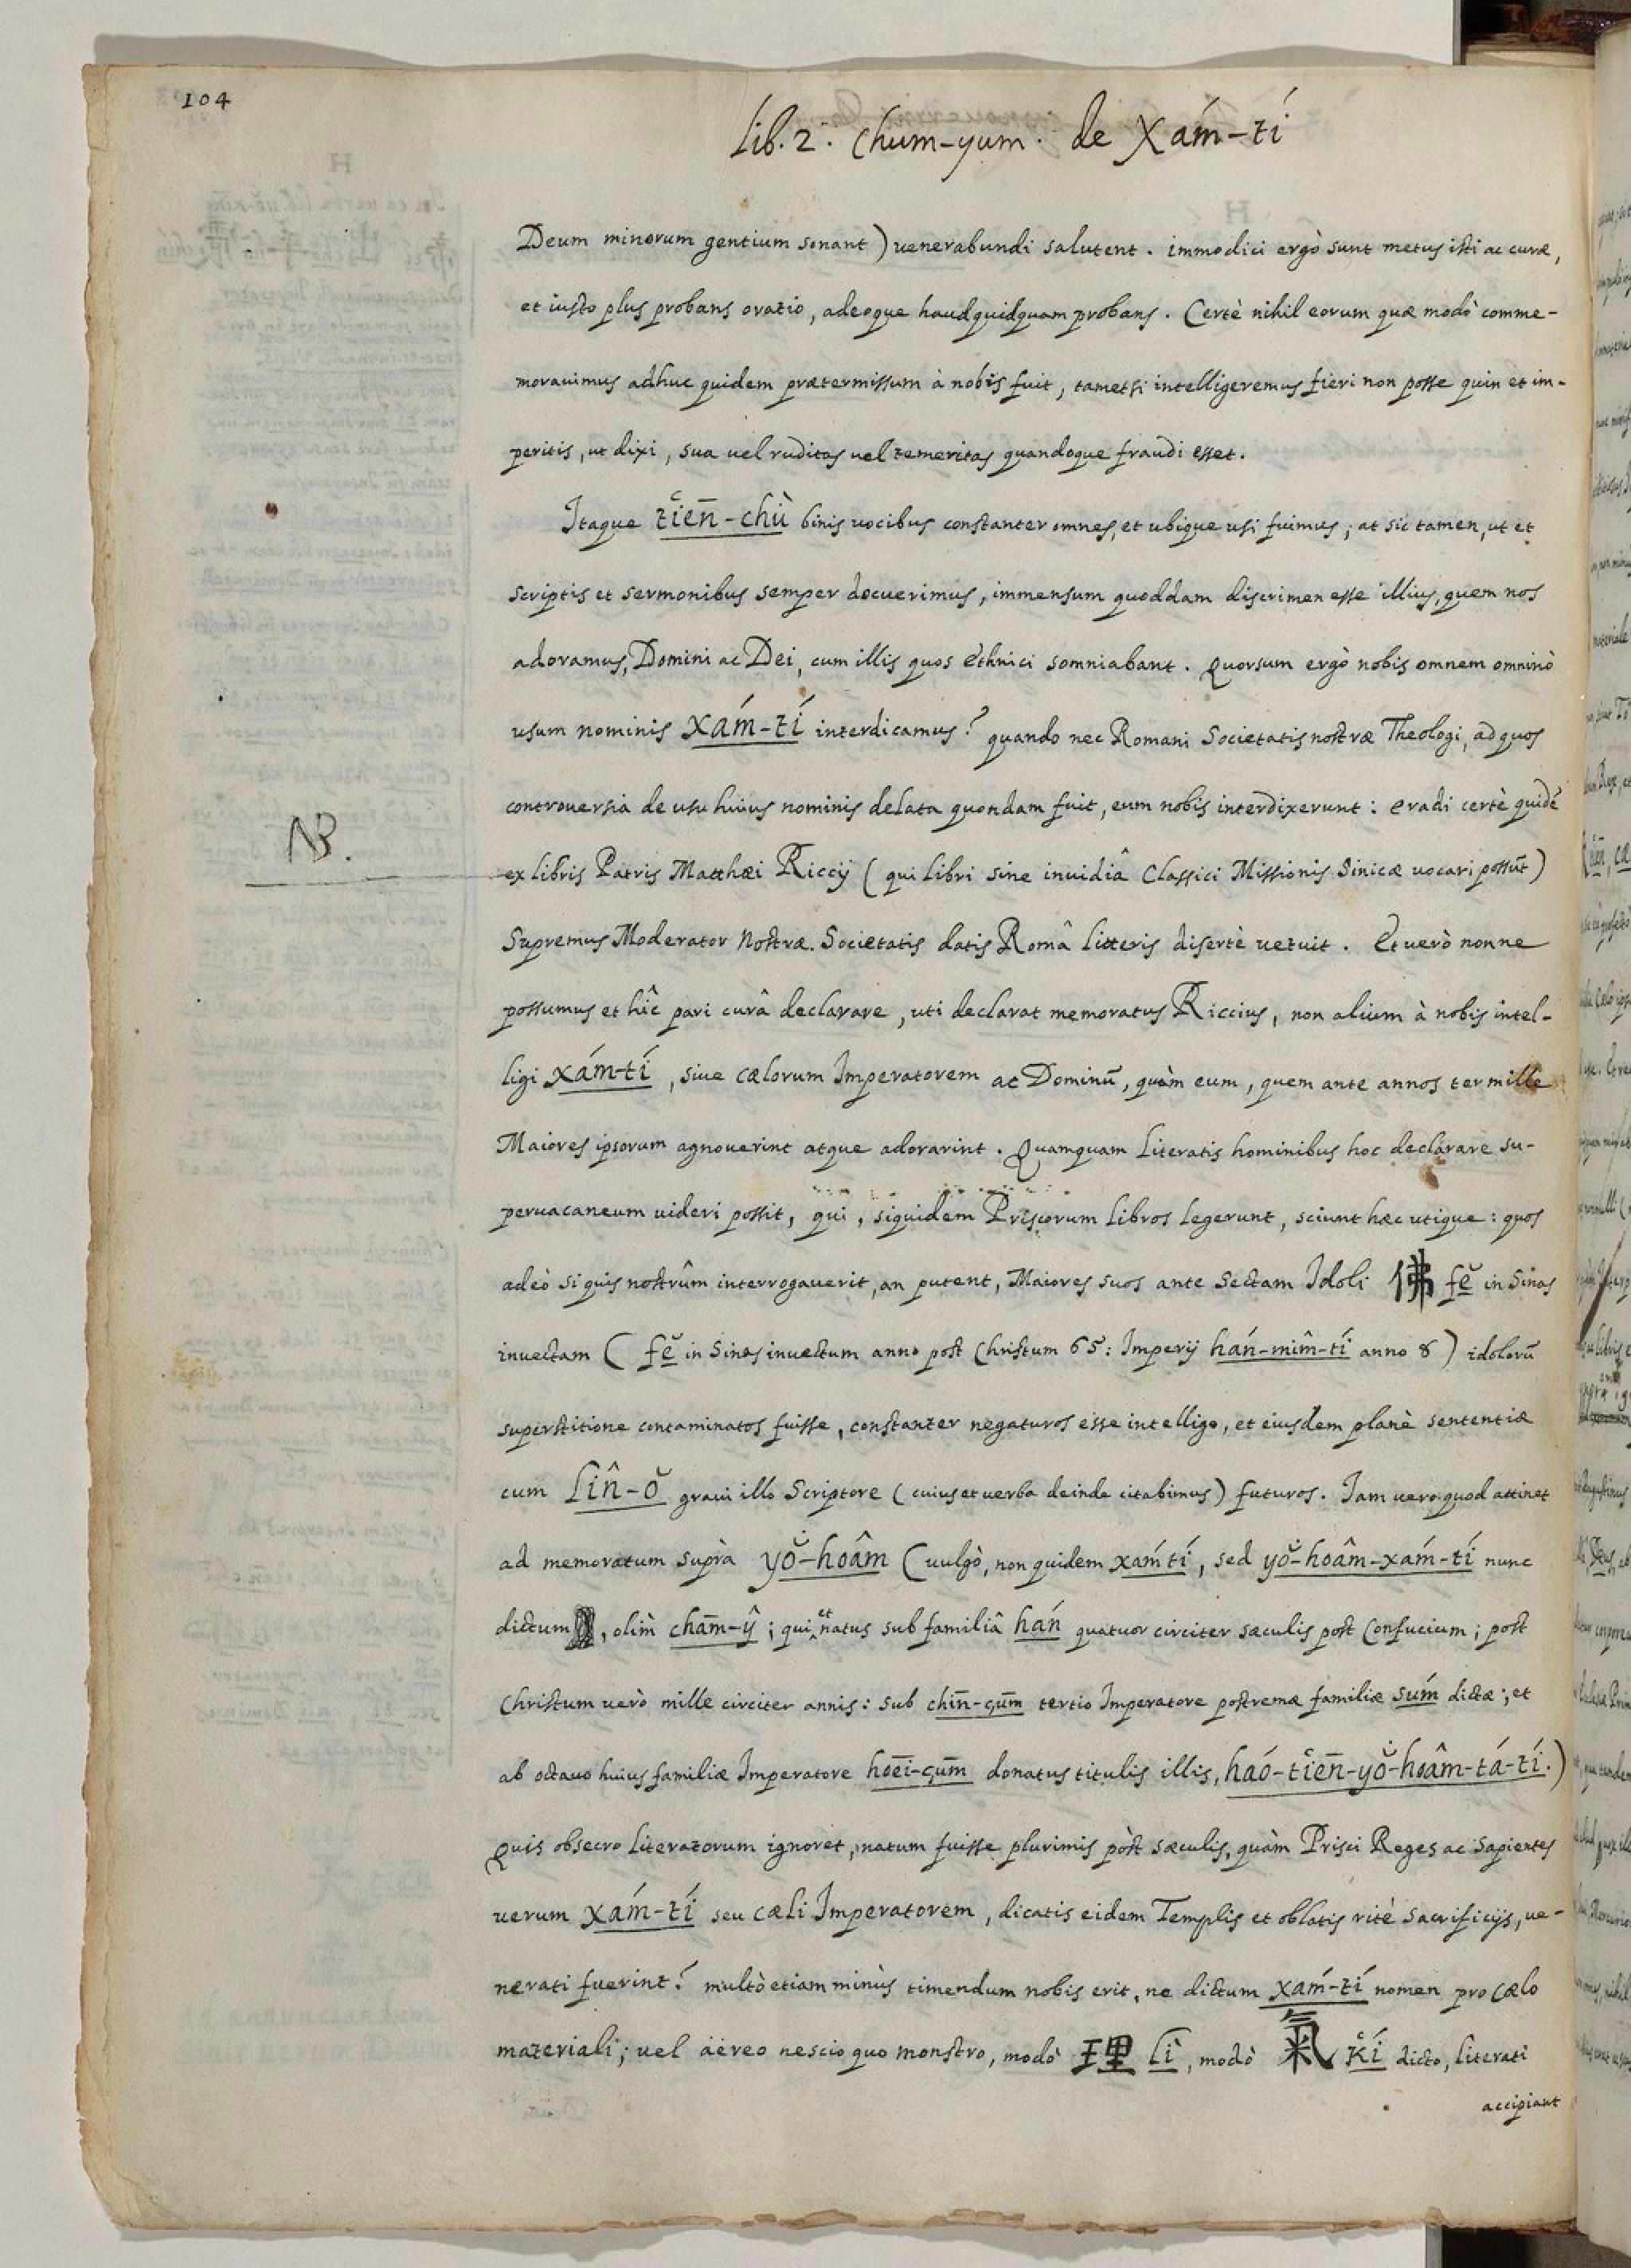 104
Lib. 2. Chum-yum. de Xám-tí
Deum minorum gentium sonant) uenerabundi salutent. immodici ergò sunt metus isti ac curæ,
et iusto plus probans oratio, adeoque haudquidquam probans. Certè nihil eorum quæ modò comme-
morauimus adhuc quidem prætermissum à nobis fuit, tametsi intelligeremus fieri non posse quin et im-
peritis, ut dixi, sua uel ruditas uel temeritas quandoque fraudi esset.
Itaque tiēn-chù binis uocibus constanter omnes, et ubique usi fuimus; at sic tamen, ut et
scriptis et sermonibus semper docuerimus, immensum quoddam discrimen esse illius, quem nos
adoramus, Domini ac Dei, cum illis quos èthnici somniabant. Quorsum ergò nobis omnem omninò
usum nominis xám-tí interdicamus? quando nec Romani Societatis nostræ Theologi, ad quos
controuersia de usu huius nominis delata quondam fuit, eum nobis interdixerunt: eradi certè quidē
NB.
ex libris Patris Matthæi Riccij (qui libri sine inuidiâ Classici Missionis Sinicæ uocari possūt)
Supremus Moderator Nostræ Societatis datis Româ litteris disertè uetuit. Et uerò nonne
possumus et hîc pari curâ declarare, uti declarat memoratus Riccius, non alium à nobis intel-
ligi xám-tí, siue cælorum Imperatorem ac Dominū, quàm eum, quem ante annos ter mille
Maiores ipsorum agnouerint atque adorarint. Quamquam Literatis hominibus hoc declarare su-
peruacaneum uideri possit, qui, siquidem Priscorum libros legerunt, sciunt hæc utique: quos
adeò si quis nostrûm interrogauerit, an putent, Maiores suos ante Sectam Idoli 佛 fĕ in Sinas
inuectam (fĕ in Sinas inuectum anno post Christum 65: Imperij hán-mîm-tí anno 8) idolorū
superstitione contaminatos fuisse, constanter negaturos esse intelligo, et eiusdem planè sententiæ
cum Lîn-ŏ graui illo Scriptore (cuius et uerba deinde citabimus) futuros. Iam uero quod attinet
ad memoratum suprà yŏ-hoâm (uulgò, non quidem xámtí, sed yŏ-hoâm-xám-tí nunc
dictum, olìm chām-ŷ; qui et natus sub familiâ hán quatuor circiter sæculis post Confucium; post
Christum uerò mille circiter annis: sub chīn-çūm tertio Imperatore postremæ familiæ súm dictæ; et
ab octauo huius familiæ Imperatore hoēi-çūm donatus titulis illis, haó-tiēn-yŏ-hoâm-tá-tí.)
Quis obsecro literatorum ignoret, natum fuisse plurimis pòst sæculis, quàm Prisci Reges ac Sapientes
uerum xám-tí seu cæli Imperatorem, dicatis eidem Templis et oblatis ritè Sacrificijs, ue-
nerati fuerint? multò etiam minùs timendum nobis erit, ne dictum xám-tí nomen pro cælo
materiali; uel aëreo nescio quo monstro, modò 理 lì, modò 氣 kí dicto, literati
accipiant